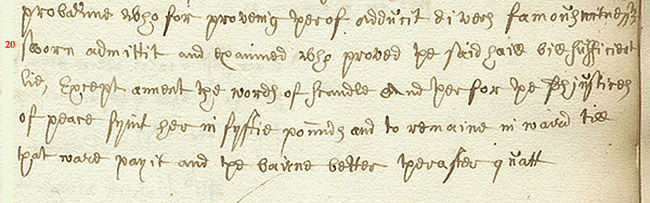 probatione who for proveing therof adducit divers famous witness
20 sworn admittit and examined who proved the said haill bill sufficient
lie, Except anent the words of scandle And therfor the sds justices
of peace fyint her in fyftie pounds and to remaine in waird till
that ware payit and the bairne better therafter quhatt